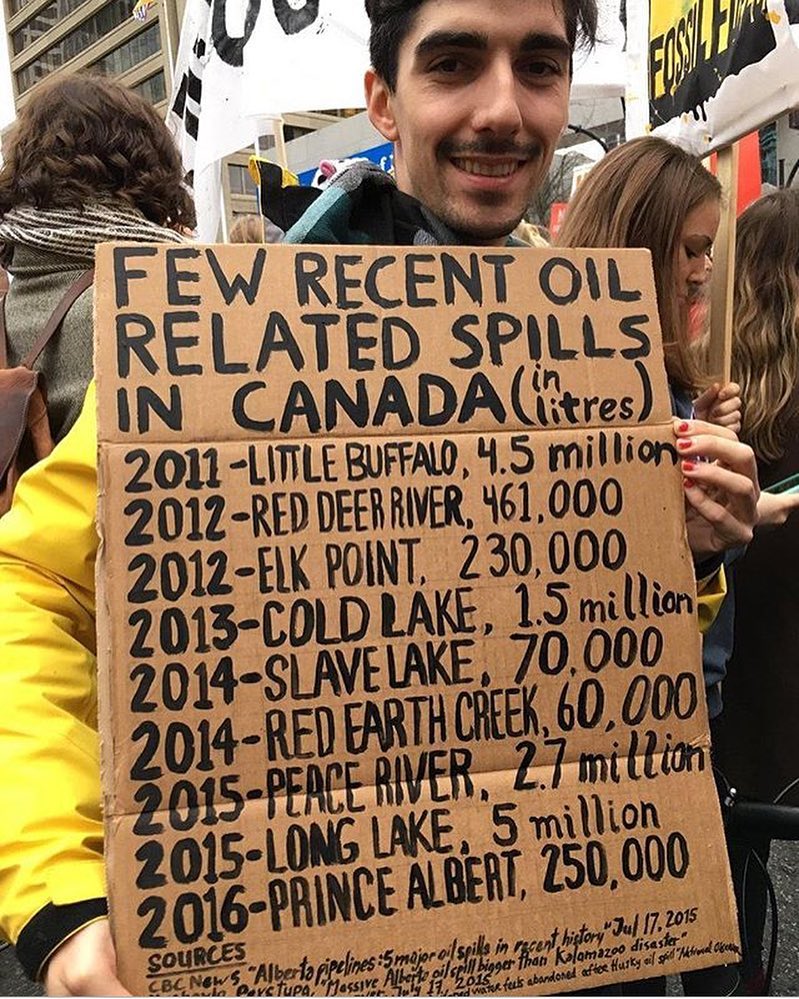 FOSSIL
FEW RECENT OIL
RELATED SPILLS
IN CANADA (in litres)
2011-LITTLE BUFFALO, 4.5 million
2012-RED DEER RIVER, 461,000
2012-ELK POINT, 230,000
2013-COLD LAKE, 1.5 million
2014-SLAVE LAKE, 70,000
2014-RED EARTH CREEK, 60,000
2015-PEACE RIVER, 2.7 million
2015-LONG LAKE, 5 million
2016-PRINCE ALBERT, 250,000
SOURCES
CBC News "Alberta pipelines: 5 major oil spills in recent history" Jul 17, 2015
"Massive Alberta oil spill bigger than Kalamazoo disaster"
July 17, 2015 water feels abandoned after Husky oil spill"